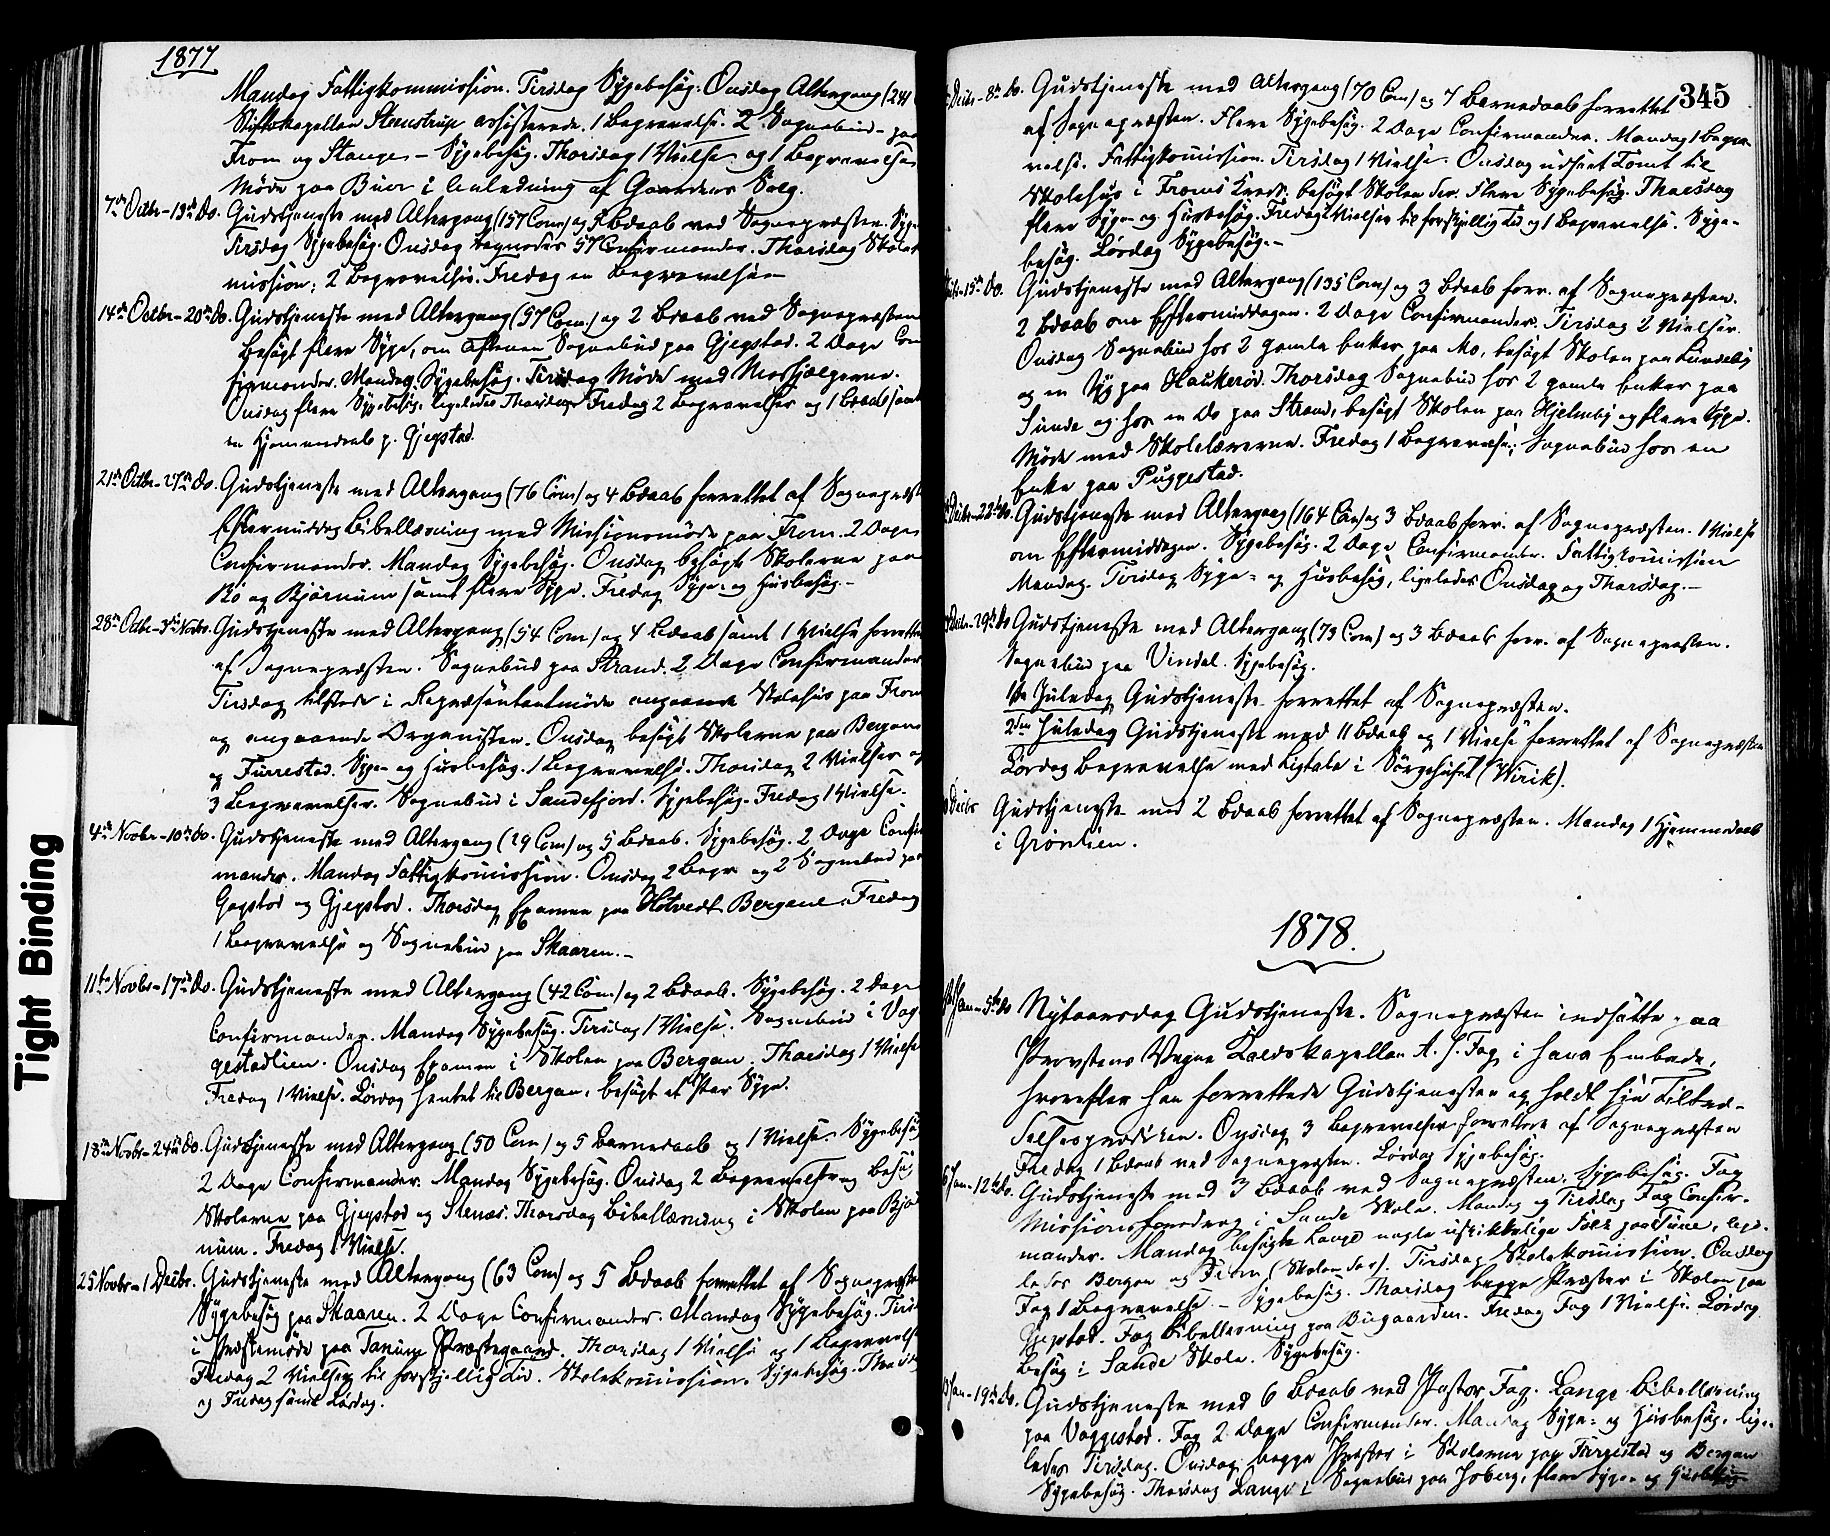 1877
Mandag Fattigkommission. Tirsdag Sygebesøg. Onsdag Altergang (241
Stiftskapellan Steenstrup assisterede. 1 Begravelse. 2 Sognebud paa
From og Stange – Sygebesøg. Thorsdag 1 Vielse og 1 Begravelse
Møde paa Buer i Anledning af Gaardens Salg.
7de Octbr – 13de do. Gudstjeneste med Altergang (157 Com) og 5 Bdaab ved Sognepræsten. Syge
Tirsdag Sygebesøg. Onsdag 57 Confirmander. Thorsdag Skolekom
mission; 2 Begravelser. Fredag en Begravelse –
14de Octbr – 20de do. Gudstjeneste med Altergang (57 Com.) og 2 Bdaab ved Sognepræsten
Besøgt flere Syge, om Aftenen Sognebud paa Gjegstad. 2 Dage Con
firmander. Mandag Sygebesøg. Tirsdag Møde med Medhjælperne.
Onsdag flere Sygebesøg, ligeledes Thorsdag. Fredag 2 Begravelser og 1 Bdaab samt
en Hjemmedaab p. Gjegstad.
21de Octbr – 27de do. Gudstjeneste med Altergang (76 Com) og 4 Bdaab forrettet af Sognepræst
Eftermiddag Bibellæsning med Missionsmøde paa From. 2 Dage
Confirmander. Mandag Sygebesøg. Onsdag besøgt Skolerne paa
Bø og Bjørnum samt flere Syge. Fredag Syge- og Husbesøg. –
28de Octbr – 3die Novbr. Gudstjeneste med Altergang (54 Com.) og 4 Bdaab samt 1 Vielse forrettet
af Sognepræsten. Sognebud paa Strand. 2 Dage Confirmander
Tirsdag tilstede i Repræsentantmøde angaaende Skolehus paa From
og angaaende Organisten. Onsdag besøgt Skolerne paa Bergan
og Furrestad. Syge- og Husbesøg. 1 Begravelse. Thorsdag 2 Vielser og
3 Begravelser. Sognebud i Sandefjord. Sygebesøg. Fredag 1 Vielse.
4de Novbr – 10de do. Gudstjeneste med Altergang (29 Com) og 5 Bdaab. Sygebesøg. 2 Dage Confir
mander. Mandag Fattigkomission. Onsdag 2 Begr. og 2 Sognebud paa
Gogstad og Gjegstad. Thorsdag Examen paa Hotvedt Bergane. Fredag
1 Begravelse og Sognebud paa Skaaren. –
11te Novbr – 17de do. Gudstjeneste med Altergang (42 Com.) og 2 Bdaab. Sygebesøg. 2 Dage
Confirmander. Mandag Sygebesøg. Tirsdag 1 Vielse. Sognebud i Vog
gestadlien. Onsdag Examen i Skolen paa Bergan. Thorsdag 1 Vielse
Fredag 1 Vielse. Lørdag hentet til Bergan, besøgt et Par Syge.
18de Novbr – 24de do. Gudstjeneste med Altergang (50 Com) og 5 Barnedaab og 1 Vielse. Sygebesøg
2 Dage Confirmander. Mandag Sygebesøg. Onsdag 2 Begravelser og besøgt
Skolerne paa Gjegstad og Stenes. Thorsdag Bibellæsning i Skolen paa Bjør
num. Fredag 1 Vielse.
25 Novbr – 1 Decbr. Gudstjeneste med Altergang (63 Com) og 5 Bdaab forrettet af Sognepræsten
Sygebesøg paa Skaaren. 2 Dage Confirmander. Mandag Sygebesøg. Tirsd
i Præstemøde paa Tanum Præstegaard. Thorsdag 1 Vielse og 1 Begravelse
Fredag 2 Vielser til forskjellig Tid. Skolekomission. Sygebesøg. Thorsdag
og Fredag samt Lørdag.
345
Decbr – 8de do. Gudstjeneste med Altergang (70 Com) og 7 Barnedaab forrettet
af Sognepræsten. Flere Sygebesøg. 2 Dage Confirmander. Mandag 1 Begra
velse. Fattigkomission. Tirsdag 1 Vielse. Onsdag udseet Tomt til
Skolehus i Froms Kreds. besøgt Skolen der. Flere Sygebesøg. Thorsdag
flere Syge- og Husbesøg. Fredag 2 Vielser til forskjellig Tid og 1 Begravelse. Syge-
besøg. Lørdag Sygebesøg. –
Decbr – 15de do. Gudstjeneste med Altergang (135 Com) og 3 Bdaab forr. af Sognepræsten.
2 Bdaab om Eftermiddagen. 2 Dage Confirmander. Tirsdag 2 Vielser.
Onsdag Sognebud hos 2 gamle Enker paa Mo, besøgt Skolen paa Lundeby
og en Syg paa Haukerød. Thorsdag Sognebud hos 2 gamle Enker paa
Sunde og hos en do paa Strand, besøgt Skolen paa Hjelmby og flere Syge.
Møde med Skolelærerne. Fredag 1 Begravelse; Sognebud hos en
Enke paa Puggestad.
Decbr – 22de do. Gudstjeneste med Altergang (164 Com) og 3 Bdaab forr. af Sognepræsten. 1 Vielse
om Eftermiddagen. Sygebesøg. 2 Dage Confirmander. Fattigkomission
Mandag. Tirsdag Syge- og Husbesøg, ligeledes Onsdag og Thorsdag. –
Decbr – 29de do Gudstjeneste med Altergang (73 Com) og 3 Bdaab forr. af Sognepræsten.
Sognebud paa Vindal. Sygebesøg.
1ste Juledag Gudstjeneste forrettet af Sognepræsten.
2den Juledag Gudstjeneste med 11 Bdaab og 1 Vielse forrettet af Sognepræsten
Lørdag Begravelse med Ligtale i Sørgehuset (Virik).
Decbr Gudstjeneste med 2 Bdaab forrettet af Sognepræsten. Mandag 1 Hjemmedaab
i Grønlien.
1878.
Jan – 5te do Nytaarsdag Gudstjeneste. Sognepræsten indsatte paa
Provstens Vegne Residskapellan A. J. Fag i hans Embede,
hvorefter han forrettede Gudstjenesten og holdt sin Tiltræd-
elsesprædiken. Onsdag 3 Begravelser forrettede af Sognepræsten
Fredag 1 Bdaab ved Sognepræsten. Lørdag Sygebesøg.
6 Jan – 12te do. Gudstjeneste med 3 Bdaab ved Sognepræsten. Sygebesøg. Fag
Missionsforedrag i Sande Skole. Mandag og Tirsdag Fag Confir-
mander. Mandag besøgte Lange nogle uskikkelige Folk paa Fuse, lige-
ledes Bergan og From (Skolen der). Tirsdag Skolekomission. Onsdag
Fag 1 Begravelse. – Sygebesøg. Thorsdag begge Præster i Skolen paa
Gjegstad. Fag Bibellæsning paa Bugaarden. Fredag Fag 1 Vielse. Lørdag
Besøg i Sande Skole. Sygebesøg.
Jan – 19de do. Gudstjeneste med 6 Bdaab ved Pastor Fag. Lange Bibellæsning
paa Voggestad. Fag 2 Dage Confirmander. Mandag Syge- og Husbesøg, lige-
ledes Tirsdag. Onsdag begge Præster i Skolerne paa Furrestad og Bergan
Sygebesøg. Thorsdag Lange i Sognebud paa Joberg, flere Syge- og Husbesøg
Tight Binding